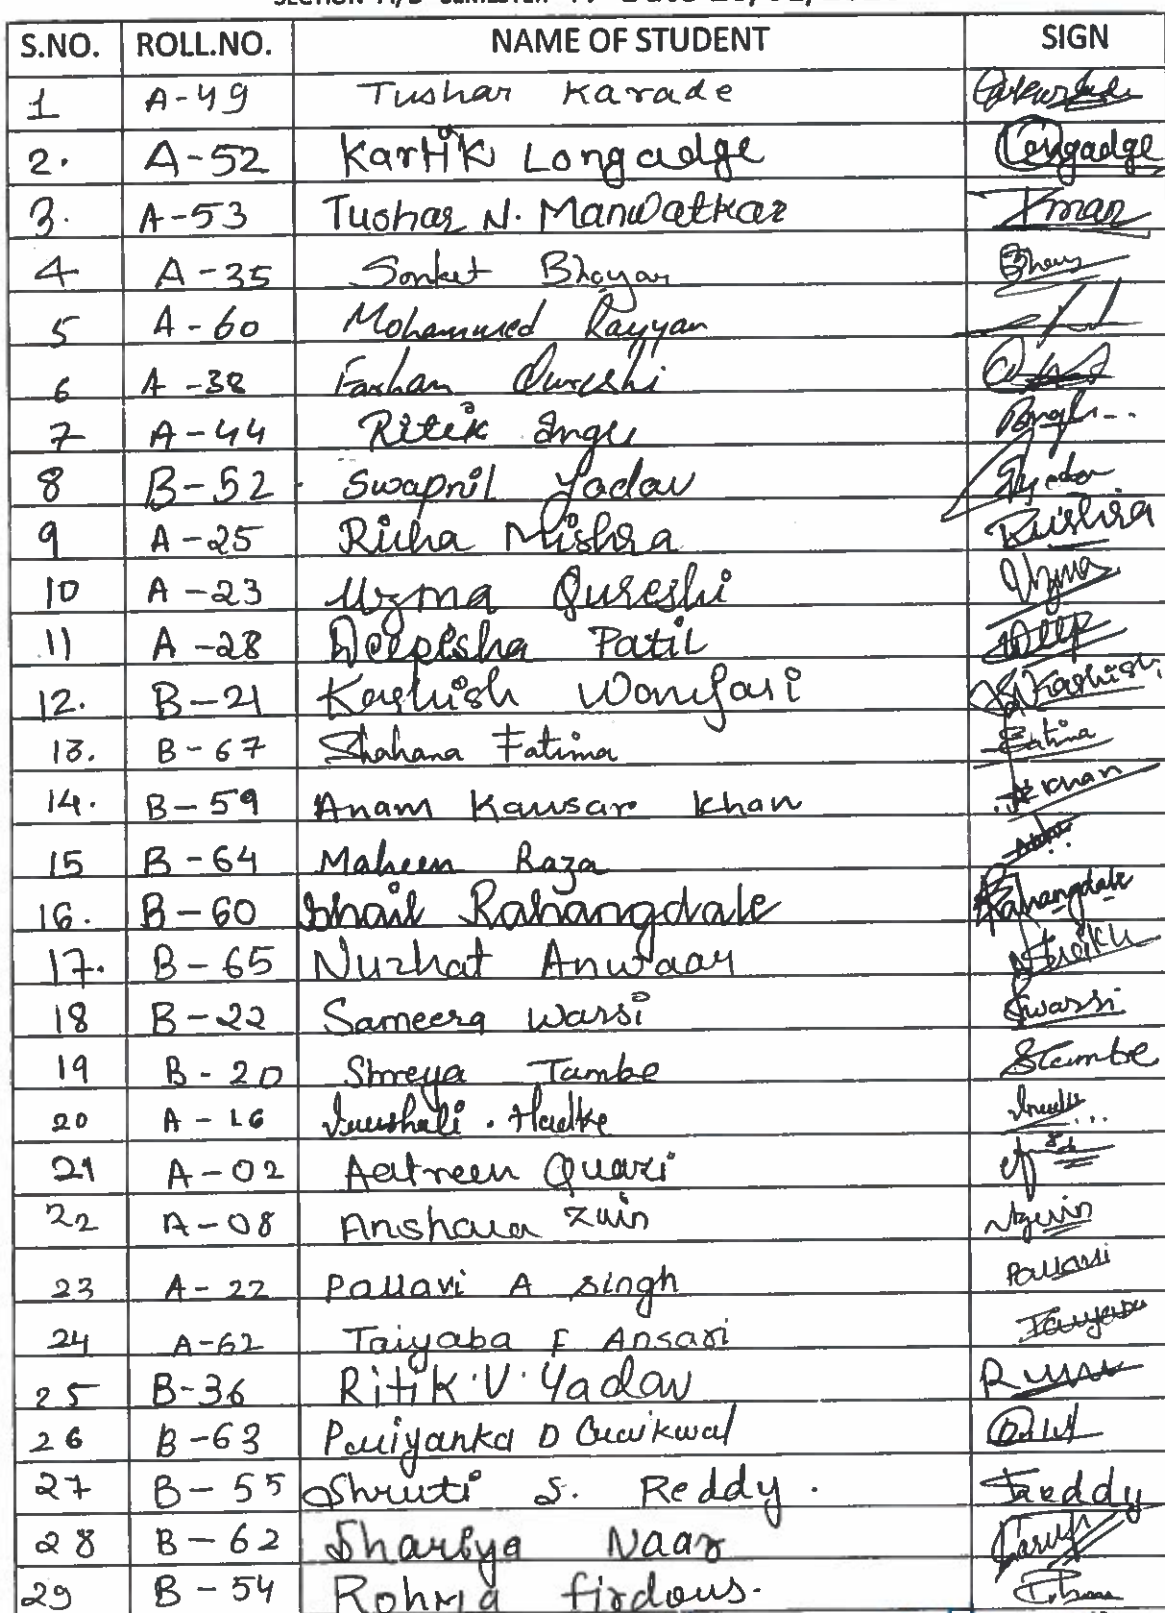 SECTION A/B SEMESTER
S.NO. ROLL.NO. NAME OF STUDENT SIGN
1 A-49 Tushar Karade
2. A-52 Kartik Longadge Longadge
3. A-53 Tushar N. Manwatkar Tman
4 A-35 Sanket Bhoyar
5 A-60 Mohammed Rayyan
6 A-38 Farhan Qureshi
7 A-44 Ritik Ingle
8 B-52 Swapnil Yadav
9 A-25 Richa Mishra
10 A-23 Uzma Qureshi Uzma
11 A-28 Deepisha Patil Deep
12. B-21 Kashish Wanjari Kashish
13. B-67 Shahana Fatima Fatima
14. B-59 Anam Kausar Khan Khan
15 B-64 Maheen Raza
16. B-60 Shail Rahangdale Rahangdale
17. B-65 Nuzhat Anwaar
18 B-22 Sameera Warsi Swarsi
19 B-20 Shreya Tambe Stambe
20 A-16 Vaushali. Hadke
21 A-02 Aatreen Quazi
22 A-08 Anshara Zain
23 A-22 Pallavi A Singh Pallavi
24 A-62 Taiyaba F Ansari Taiyaba
25 B-36 Ritik.V.Yadav
26 B-63 Priyanka D
27 B-55 Shruti S. Reddy. Reddy
28 B-62 Naaz
29 B-54 firdous.